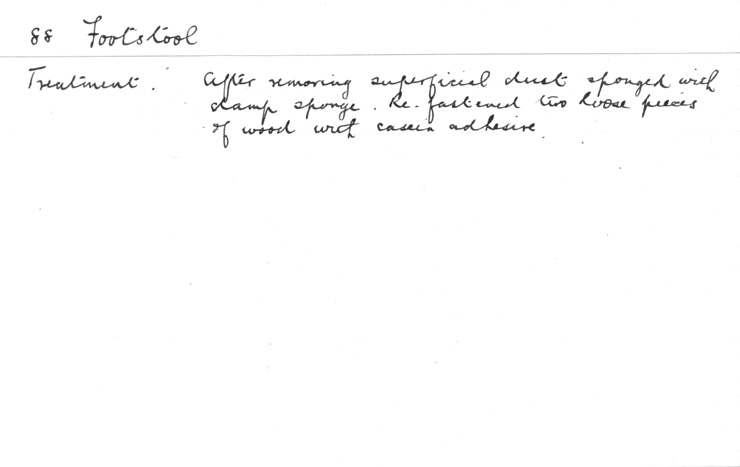 88 Footstool
Treatment. After removing superficial dust sponged with
damp sponge. Re-fastened two loose pieces
of wood with casein adhesive.